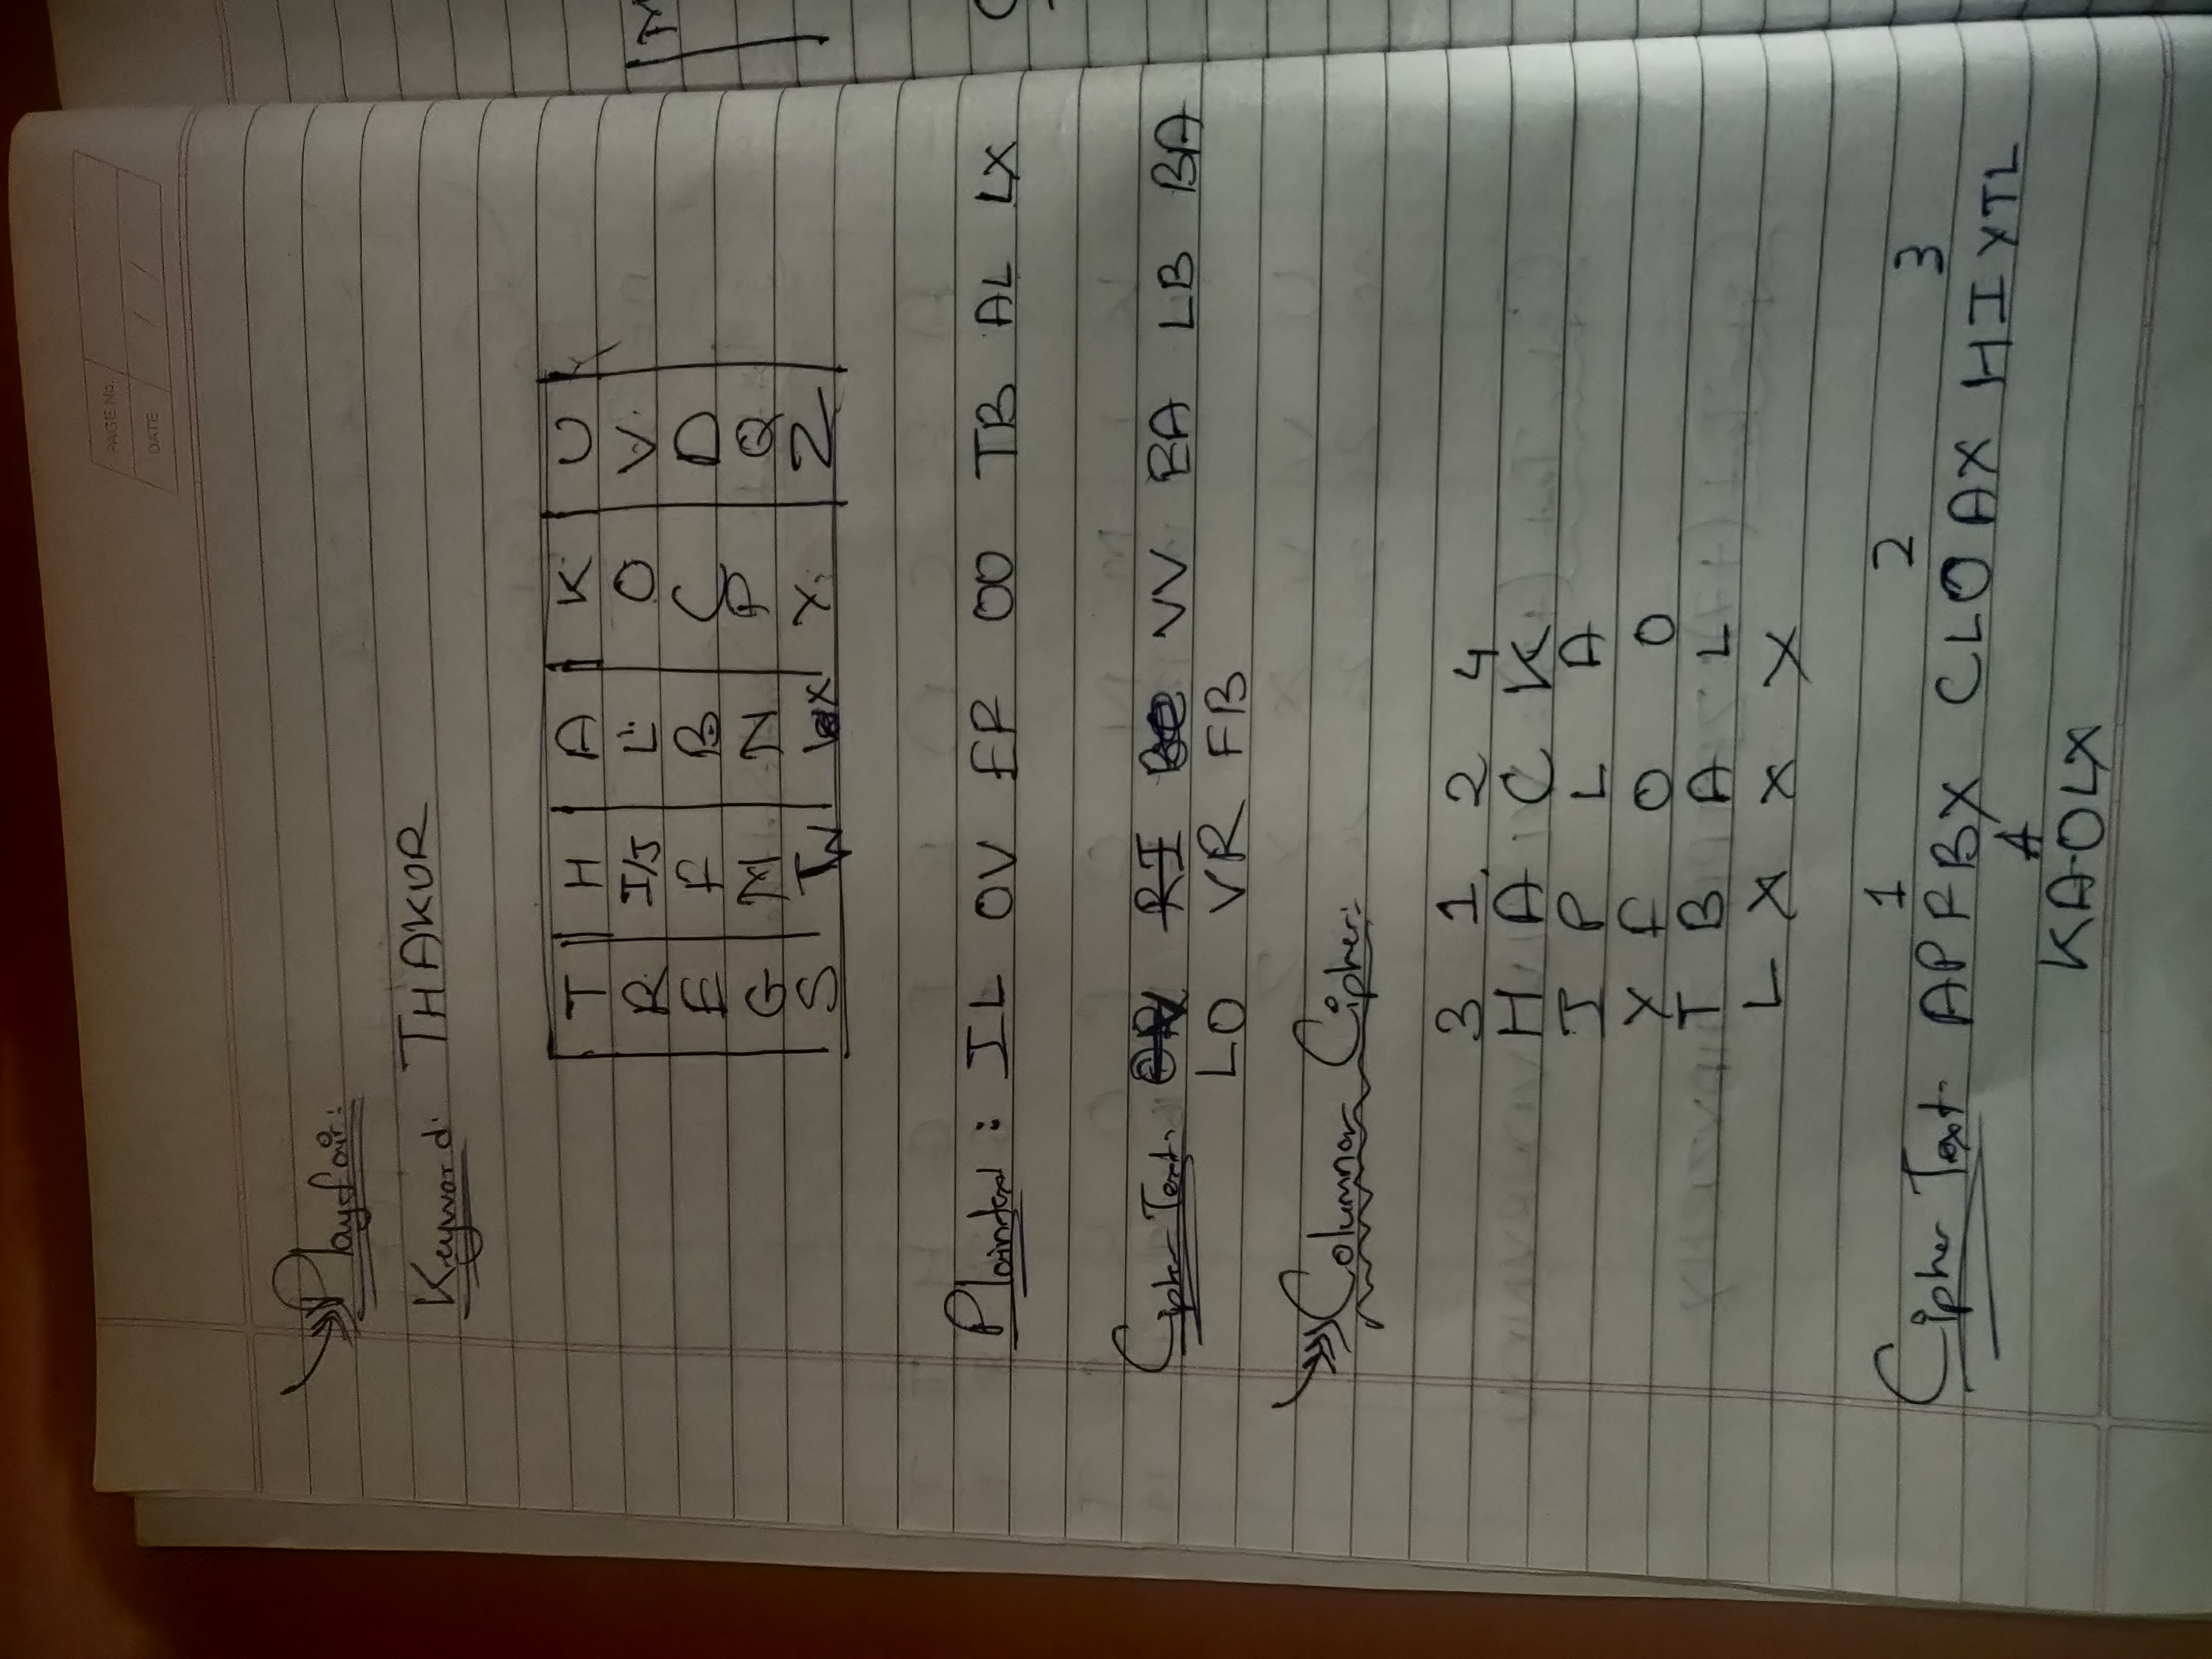 PAGE No.
DATE / /
Playfair:
Keyword: THAKUR
T H A K U
R I/J L O V
E F B C D
G M N P Q
S W X Y Z
Plaintext : IL OV EF OO TB AL LX
Cipher Text: RI VV EA LB BA
LO VR FB
Columnar Cipher:
3 1 2 4
H A C K
I P L A
Y F O O
T B A L
L X X X
1 2 3
Cipher Text- APFBX CLOAX HIYTL
4
KAOLX